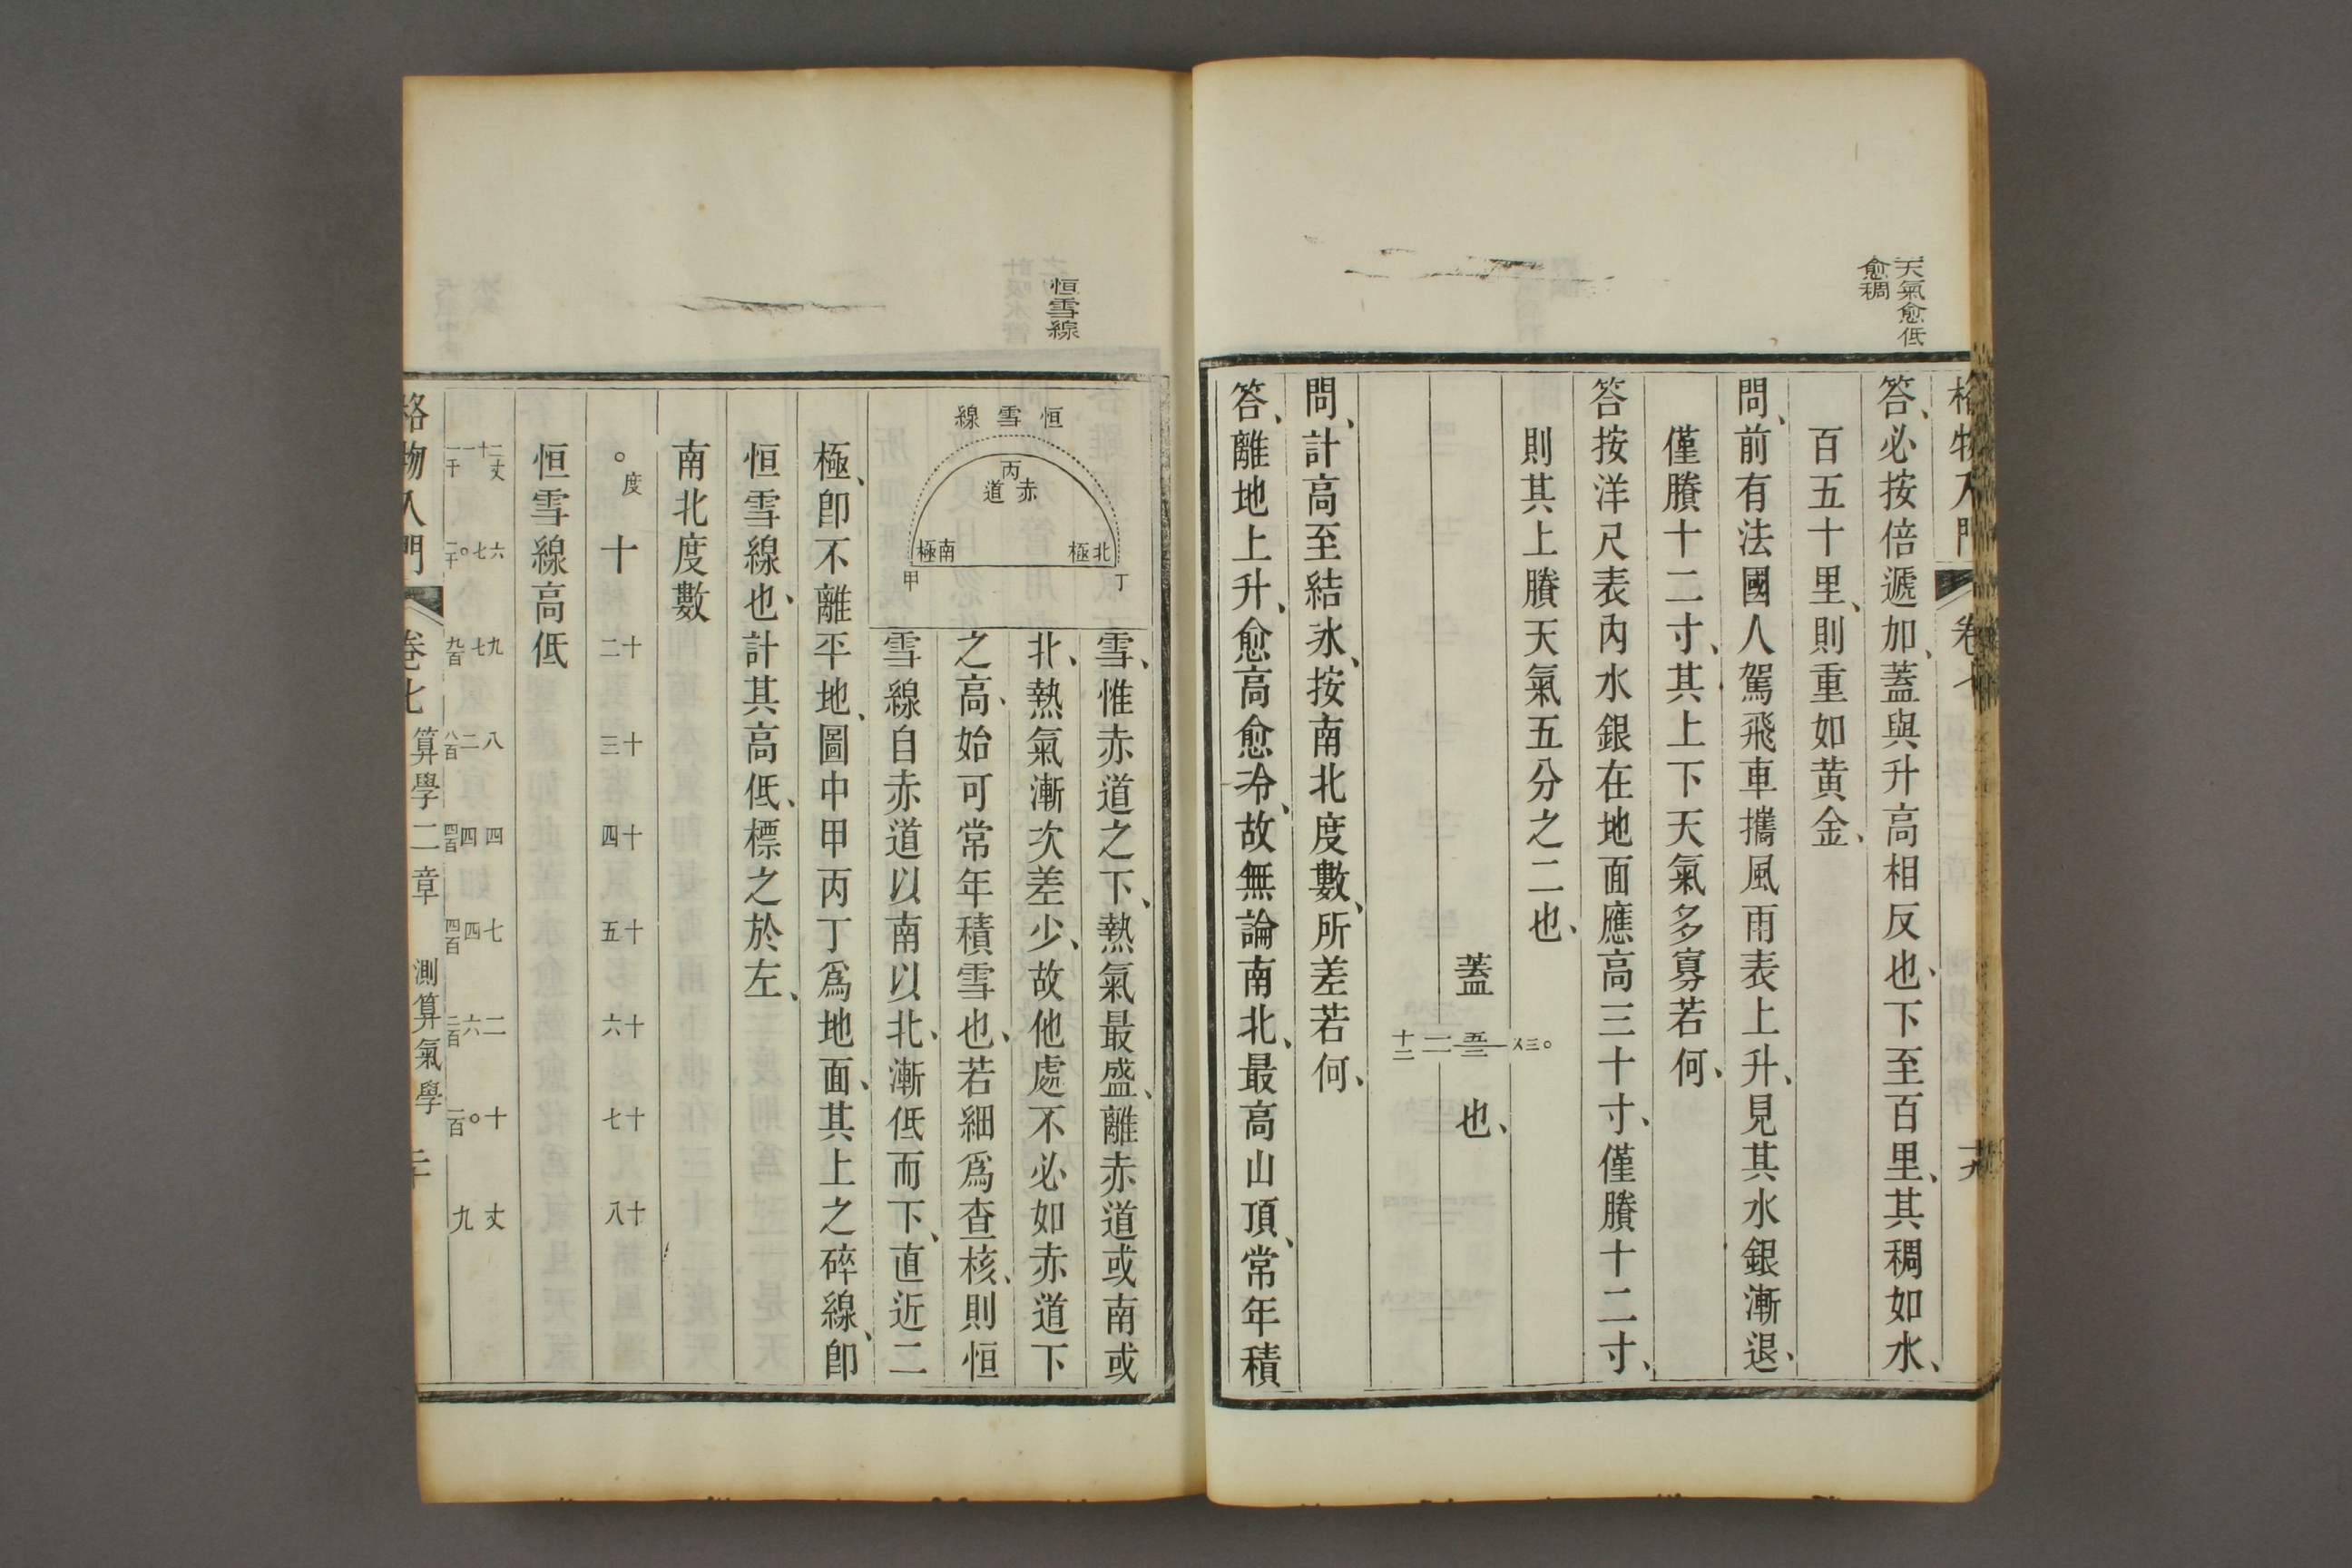 天氣愈低
愈稠
格物入門
卷七
十九
答、必按倍遞加、蓋與升高相反也、下至百里、其稠如水、
百五十里、則重如黃金、
問、前有法國人駕飛車攜風雨表上升、見其水銀漸退、
僅賸十二寸、其上下天氣多寡若何、
答按洋尺表內水銀在地面應高三十寸、僅賸十二寸、
則其上賸天氣五分之二也、
蓋
也、
問、計高至結氷、按南北度數、所差若何、
答、離地上升、愈高愈冷、故無論南北、最高山頂、常年積
恒雪線
恒雪線
丙
赤道
南極
北極
甲
丁
雪、惟赤道之下、熱氣最盛、離赤道或南或
北、熱氣漸次差少、故他處不必如赤道下
之高、始可常年積雪也、若細爲查核、則恒
雪線自赤道以南以北、漸低而下、直近二
極、卽不離平地、圖中甲丙丁爲地面、其上之碎線、卽
恒雪線也、計其高低、標之於左、
南北度數
○度 十 二十 三十 四十 五十 六十 七十 八十
恒雪線高低
格物入門
卷七
算學二章
測算氣學
二十